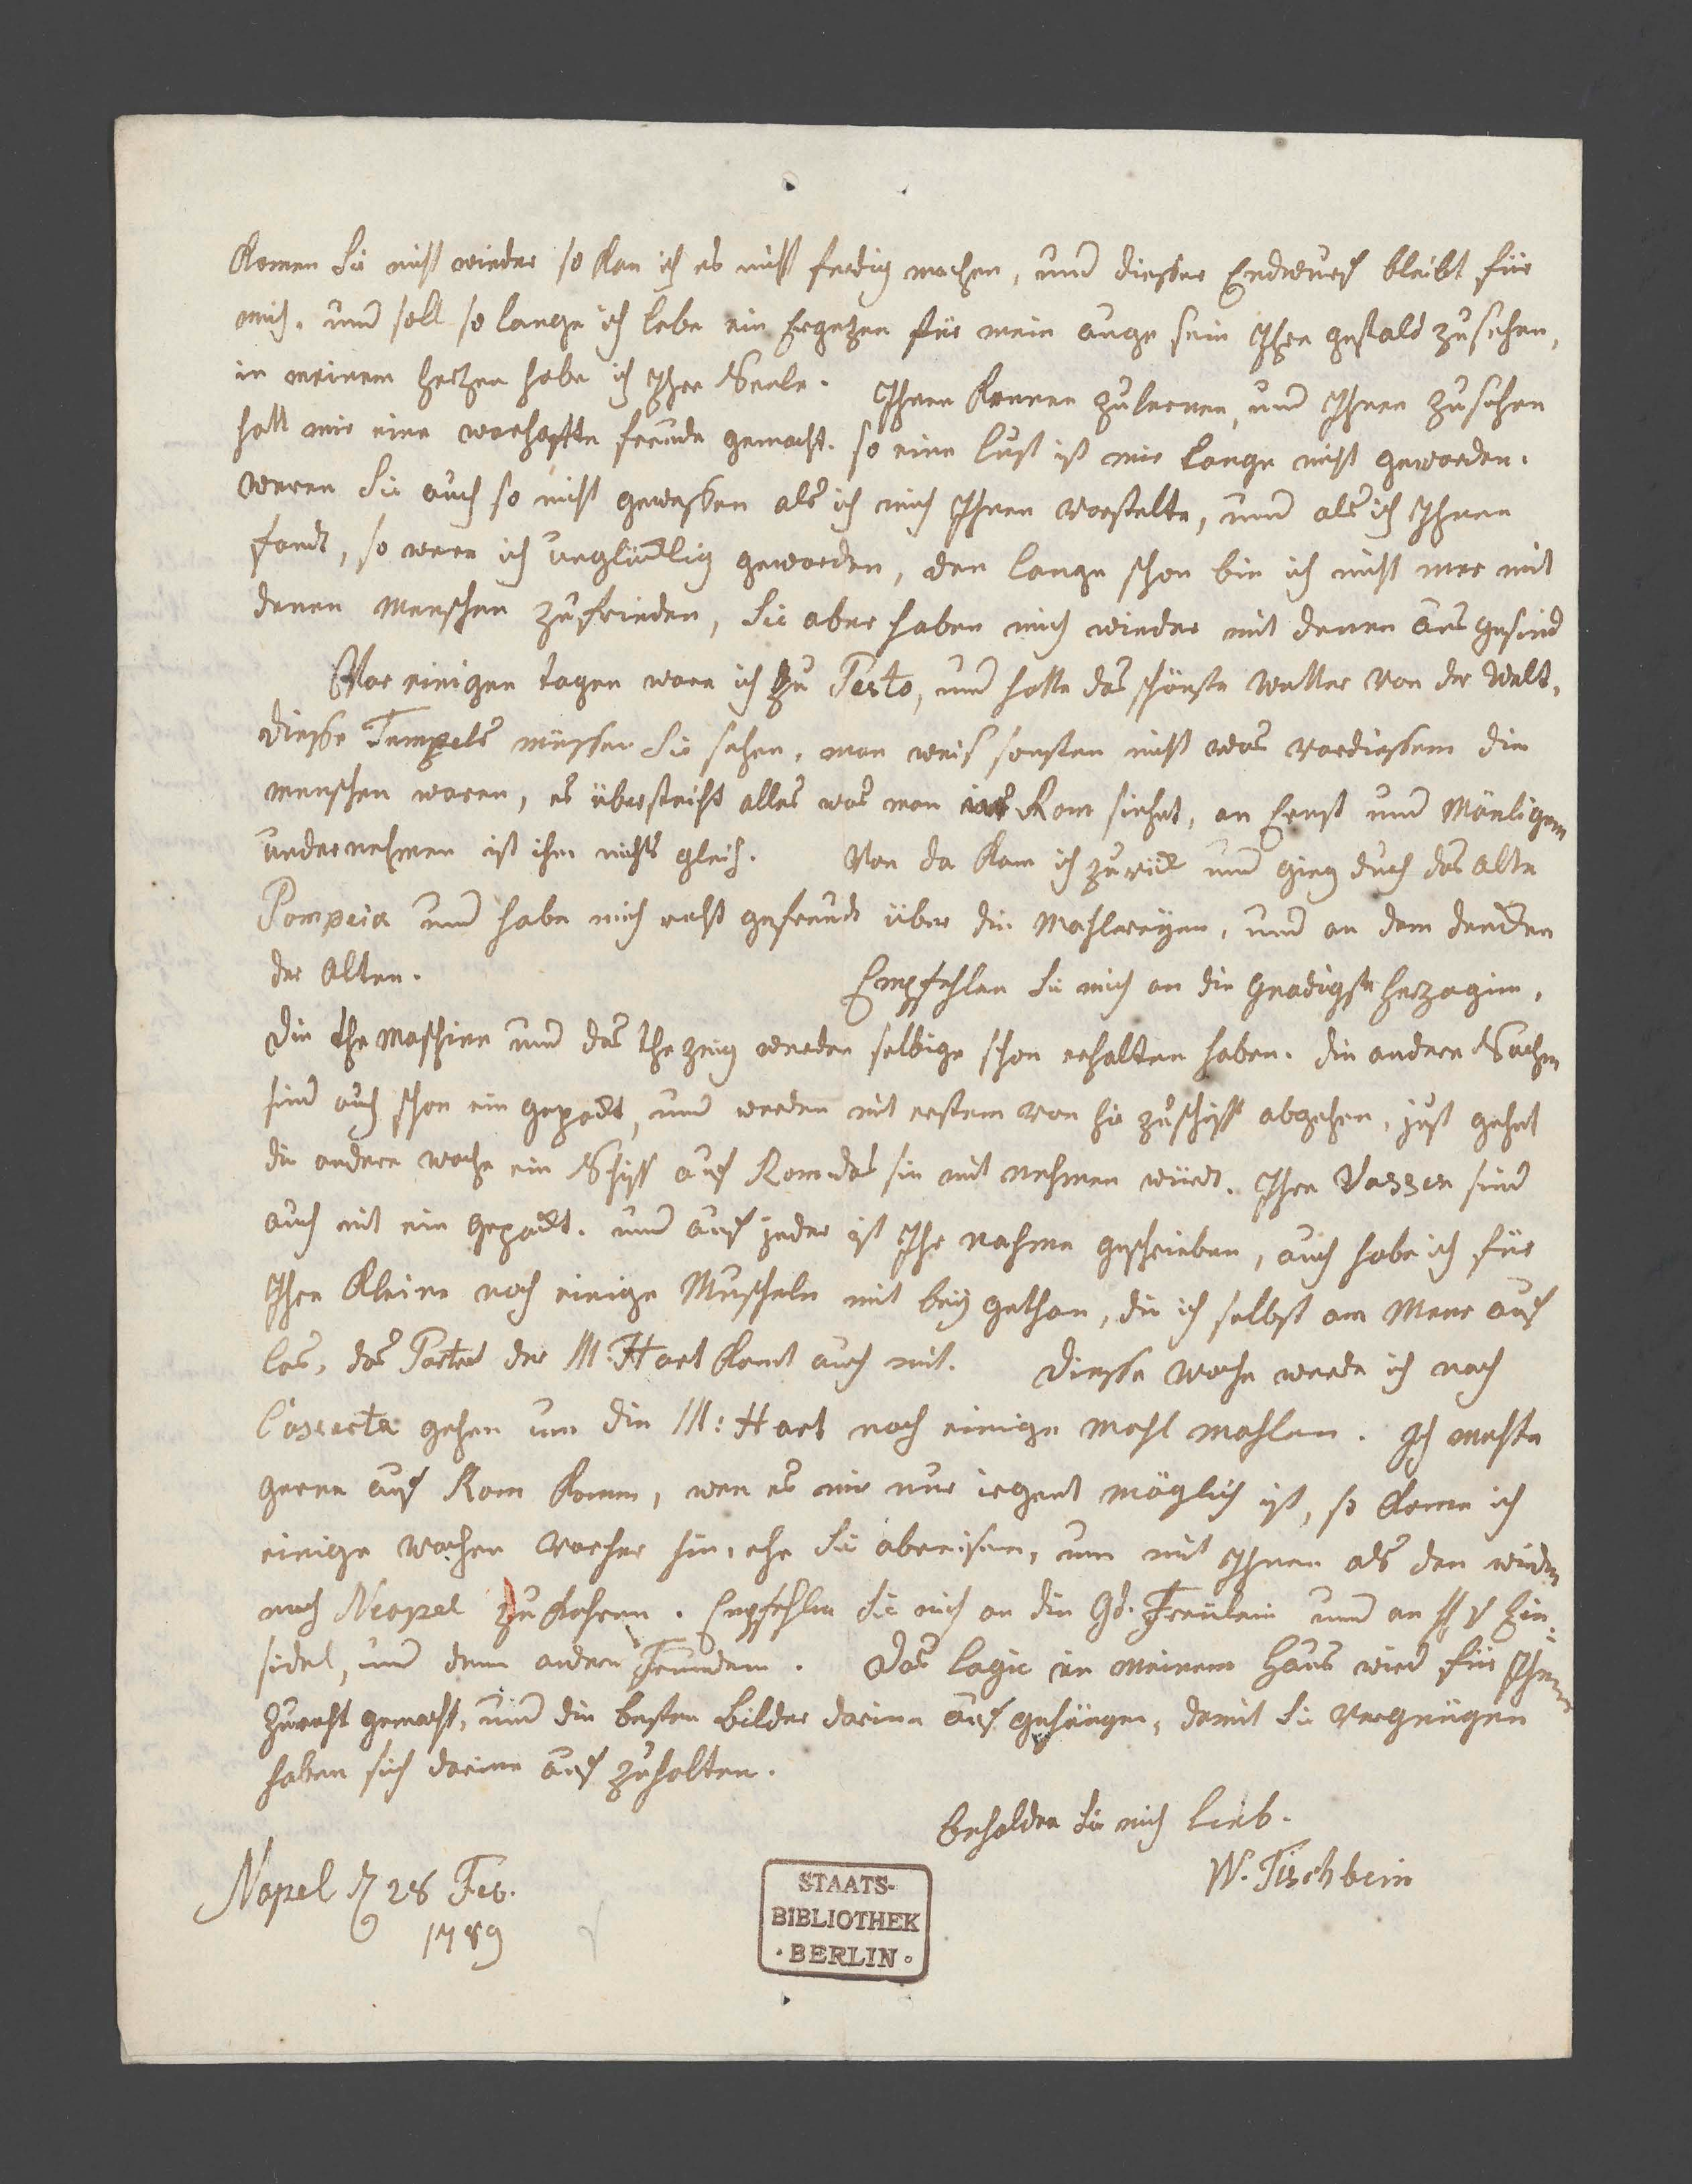 komen Sie nicht wieder so kan ich es nicht ferdig machen, und diesser Endwurf bleibt für
mich. und soll so lange ich lebe ein Ergetzen für mein auge sein Ihre gestald zu sehen,
in meinem hertzen habe ich Ihre Seele. Ihnen kennen zu lernen, und Ihnen zu sehen
hatt mir eine warhaftte freude gemacht. so eine lust ist mir lange nicht geworden.
weren Sie auch so nicht gewessen als ich mich Ihnen vorstelte, und als ich Ihnen
fandt, so were ich unglücklig geworden, den lange schon bin ich nicht mer mit
denen Menschen zu frieden, Sie aber haben mich wieder mit denen aus gesind
Vor einigen tagen ware ich zu Pesto, und hatte das schönste wetter von der Welt,
diesse Tempels müssen Sie sehen, man weis sonsten nicht was vordiessem die
menschen waren, es übersteicht alles was man in Rom siehet, an Ernst und Mänligem
undernehmen ist ihm nichts gleich. Von da kam ich zurück und ging durch das alte
Pompeia und habe mich recht gefreudt über die Mahlereyen, und an dem dencken
der Alten. Empfehlen Sie mich an die Gnädigste Herzogin,
die the Maschine und das thezeug werden selbige schon erhalten haben. die andere Sachen
sind auch schon ein gepackt, und werden mit erstem von hir zu schiff abgehen, just gehet
die andere woche ein Schiff auf Rom das sie mit nehmen würdt. Ihre Vassen sind
auch mit ein gepackt. und auf jeder ist Ihr nahme geschrieben, auch habe ich für
Ihre Kleine noch einige Muscheln mit bey gethan, die ich selbst am Meer auf
las, das Portret der M: Hart komt auch mit. Diesse woche werde ich nach
Casserta gehen um die M: Hart noch einige mahl mahlen. Ich mechte
gerne auf Rom komen, wen es mir nur irgent möglich ist, so kome ich
einige wochen vorher hin, ehe Sie abreisen, um mit Ihnen als dan wieder
nach Neapel zu kehren. Empfehlen Sie mich an die Gd. Freulein und an H v Ein-
sidel, und denn andern Freunden. Das logie in meinem Haus wird für Ihnen
zurecht gemacht, und die besten bilder darinn auf gehängen, damit Sie vergnügen
haben sich darinn auf zuhalten.
behalden Sie mich lieb.
W. Tischbein
Napel d 28 Feb.
1789
STAATS-
BIBLIOTHEK
· BERLIN ·